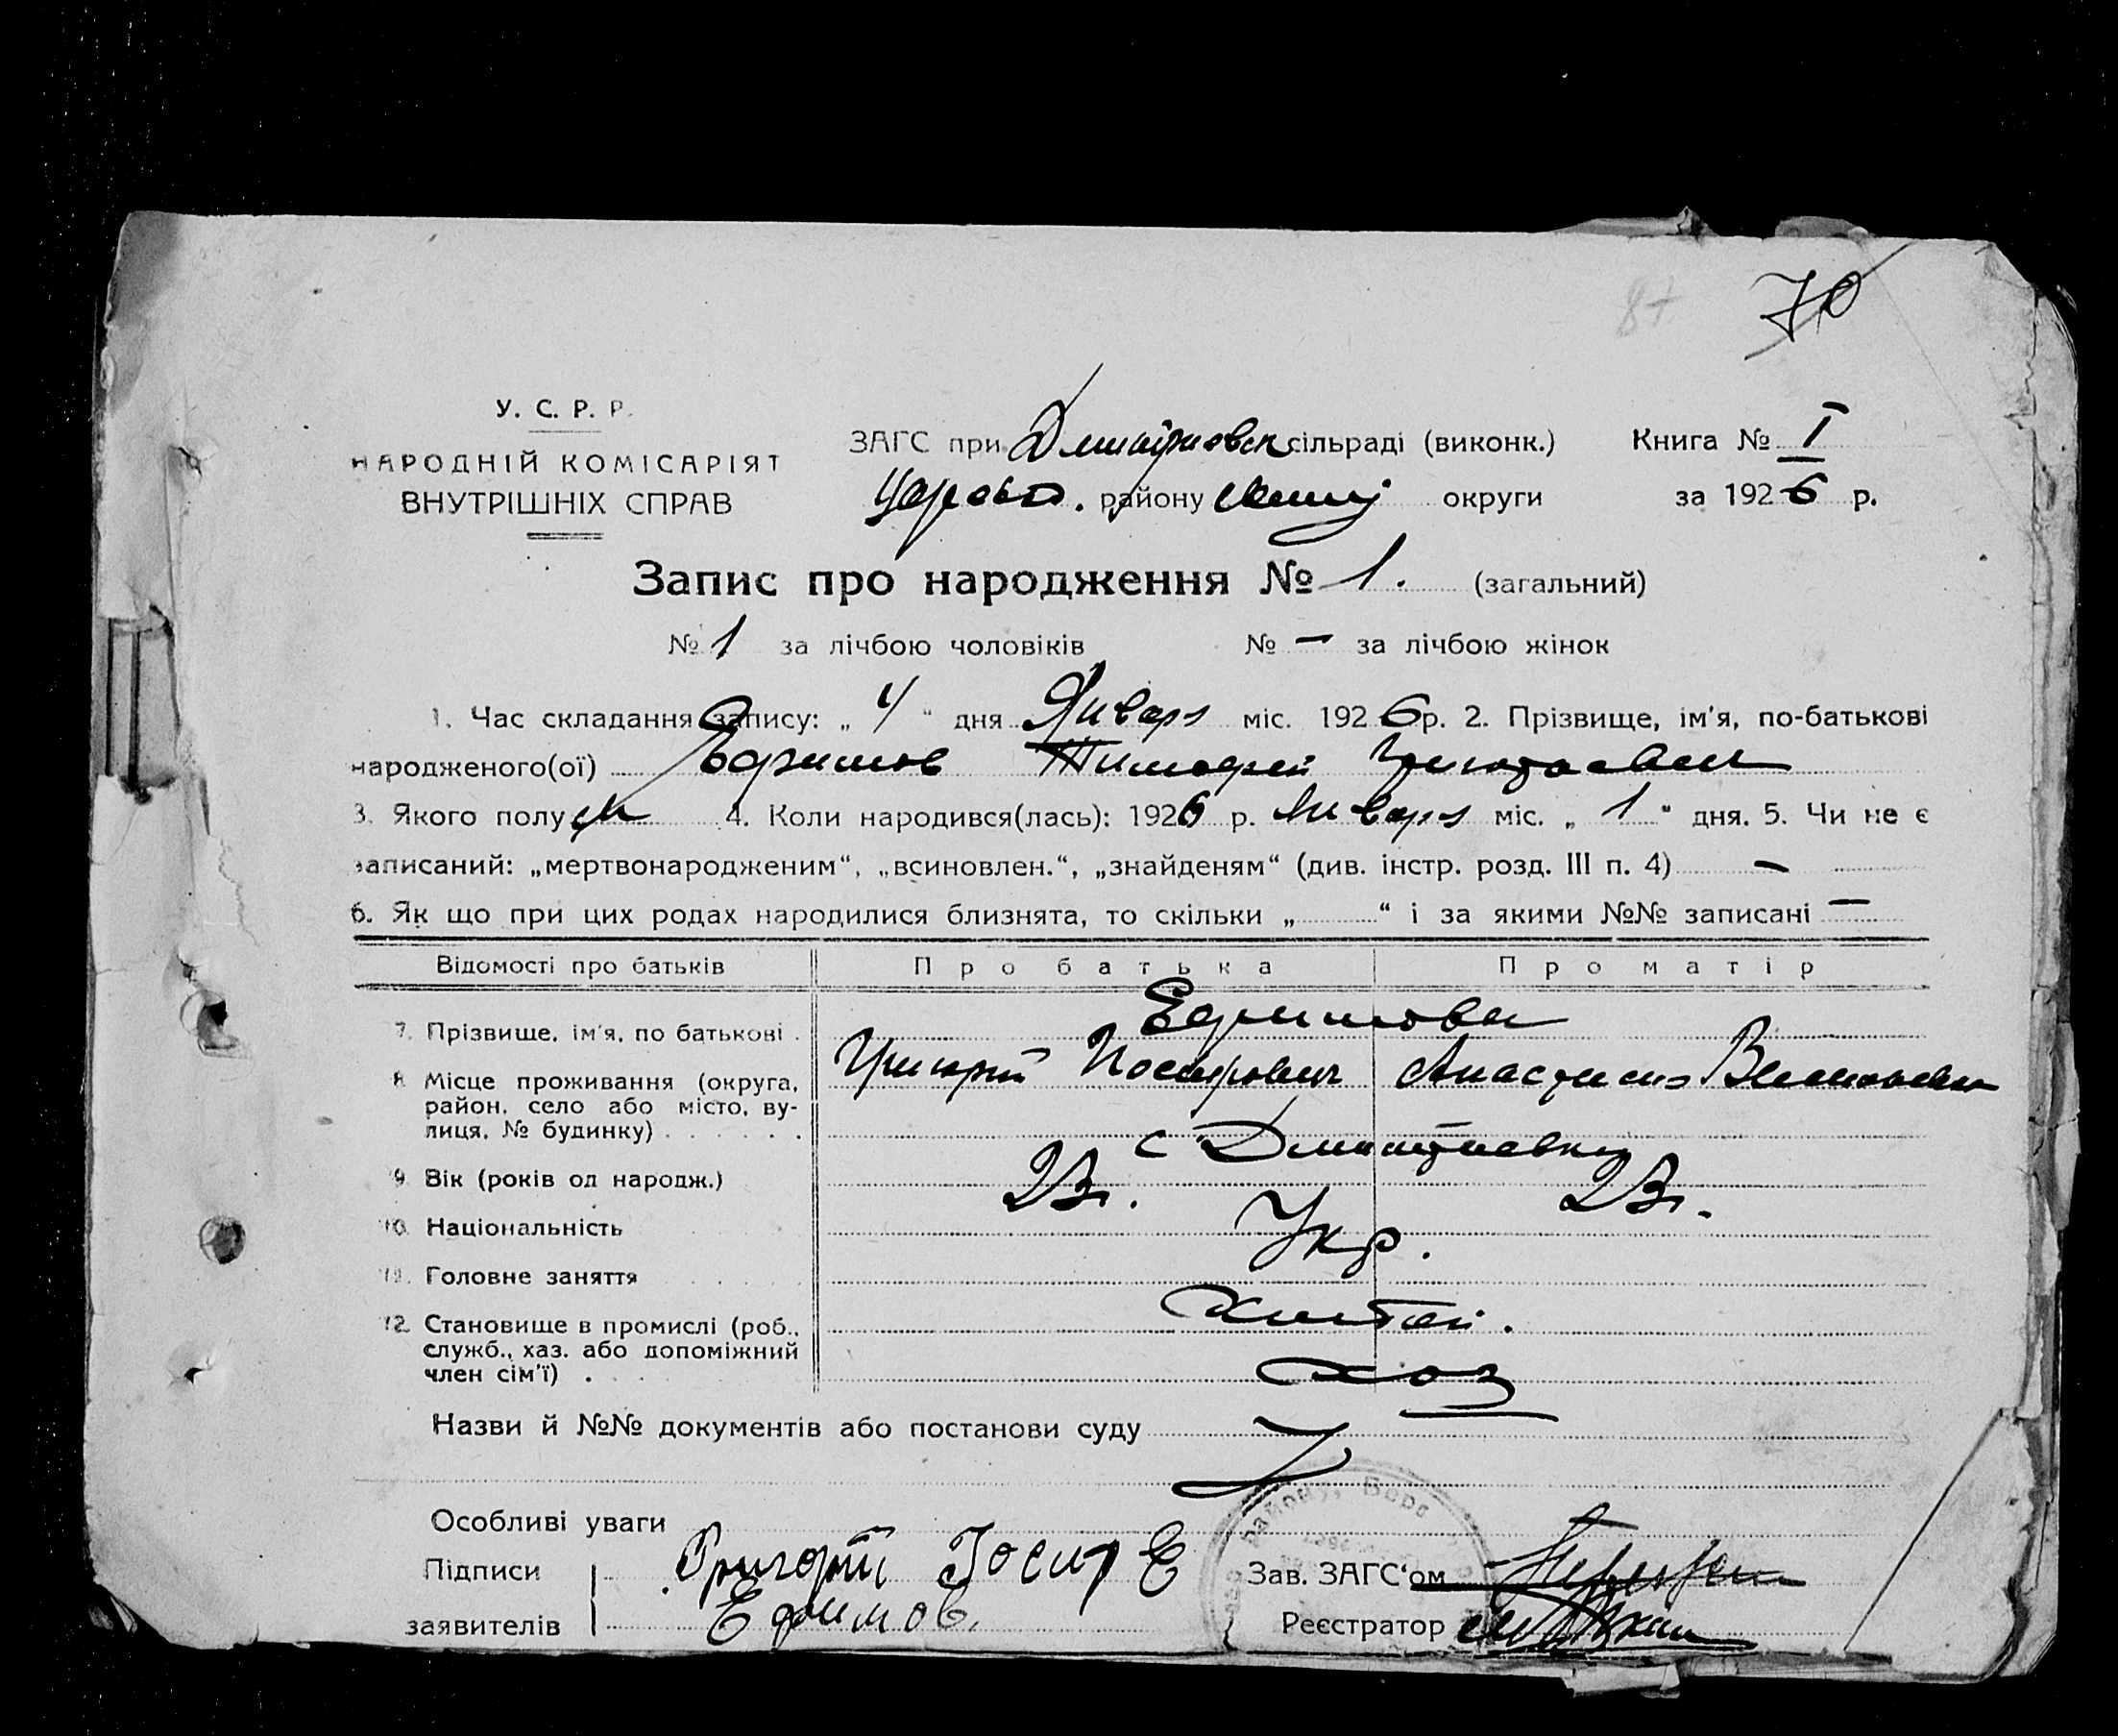 87
70
У. С. Р. Р.
НАРОДНІЙ КОМІСАРІЯТ
ВНУТРІШНІХ СПРАВ
ЗАГС при Дмитровск сільраді (виконк.) Книга № I
району округи за 1926 р.
Запис про народження № 1. (загальний)
№ 1 за лічбою чоловіків № — за лічбою жінок
1. Час складання запису: „ 4 “ дня Января міс. 1926 р. 2. Прізвище, ім'я, по-батькові
народженого(ої) Ефимов Тимофей Григорьевич
3. Якого полу м 4. Коли народився(лась): 1926 р. Января міс. „ 1 “ дня. 5. Чи не є
записаний: „мертвонародженим“, „всиновлен.“, „знайденям“ (див. інстр. розд. III п. 4) —
6. Як що при цих родах народилися близнята, то скільки „ “ і за якими №№ записані —
Відомості про батьків Про батька Про матір
7. Прізвище, ім'я, по батькові . Ефимова
Григорий Иосифович Анастасия
8. Місце проживання (округа, район, село або місто, ву-
лиця, № будинку) . . . . . . с Дмитриевки
9. Вік (років од народж.) 23 г. 23 г.
10. Національність Укр.
11. Головне заняття
12. Становище в промислі (роб.,
служб., хаз. або допоміжний
член сім'ї) . хоз
Назви й №№ документів або постанови суду
Особливі уваги
Підписи Григорій Іосиф Е
заявителів Ефимов.
Зав. ЗАГС'ом
Реєстратор
району,